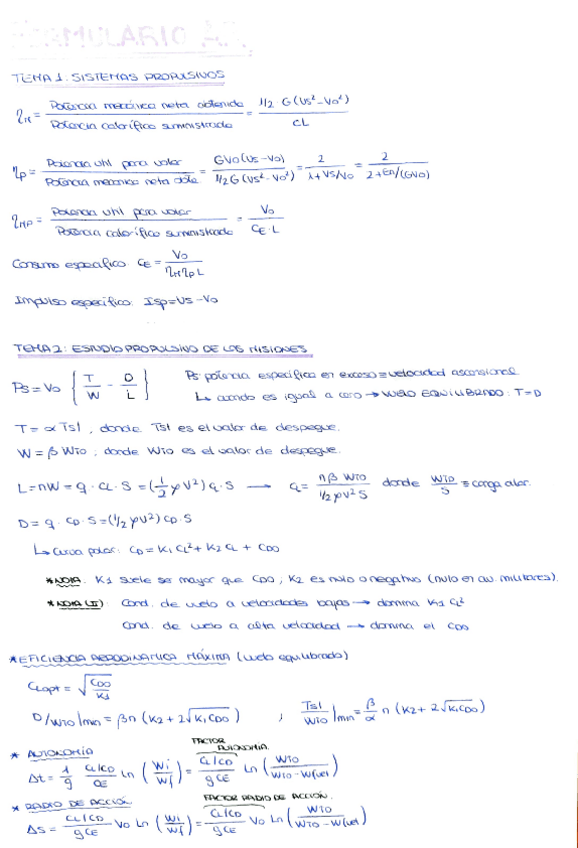 FORMULARIO A
TEMA 1: SISTEMAS PROPULSIVOS
ηM = Potencia mecánica neta obtenida / Potencia calorífica suministrada = 1/2 G(Vs² - Vo²) / CL
ηP = Potencia util para volar / Potencia mecanica neta obte. = GVo(Vs - Vo) / 1/2 G(Vs² - Vo²) = 2 / 1+Vs/Vo = 2 / 2+En/(GVo)
ηMP = Potencia util para volar / Potencia calorífica suministrada = Vo / CE·L
Consumo específico: CE = Vo / ηMηP L
Impulso específico: Isp = Vs - Vo
TEMA 2: ESTUDIO PROPULSIVO DE LAS MISIONES
Ps = Vo { T/W - D/L } Ps potencia específica en exceso ≡ velocidad ascensional.
↳ cuando es igual a cero → VUELO EQUILIBRADO: T=D
T = α Tsl, donde Tsl es el valor de despegue.
W = β WTO, donde WTO es el valor de despegue.
L = nW = q · CL · S = (1/2 ρV²) CL · S → CL = nβ WTO / 1/2 ρV² S donde WTO/S ≡ carga alar.
D = q · CD · S = (1/2 ρV²) CD · S
↳ Curva polar: CD = K1 CL² + K2 CL + CDO
*NOTA: K1 suele ser mayor que CDO, K2 es nulo o negativo (nulo en av. militares).
*NOTA (II): Cond. de vuelo a velocidades bajas → domina K1 CL²
Cond. de vuelo a alta velocidad → domina el CDO
*EFICIENCIA AERODINAMICA MÁXIMA (vuelo equilibrado)
CLopt = √CDO/K1
D/WTO|min = βn (K2 + 2√K1CDO) ; Tsl/WTO|min = β/α n (K2 + 2√K1CDO)
FACTOR AUTONOMÍA
* AUTONOMÍA
Δt = 1/g CL/CD / CE Ln (Wi/Wf) = CL/CD / gCE Ln (WTO / WTO - Wfuel)
FACTOR RADIO DE ACCIÓN.
* RADIO DE ACCIÓN
ΔS = CL/CD / gCE Vo Ln (Wi/Wf) = CL/CD / gCE Vo Ln (WTO / WTO - Wfuel)